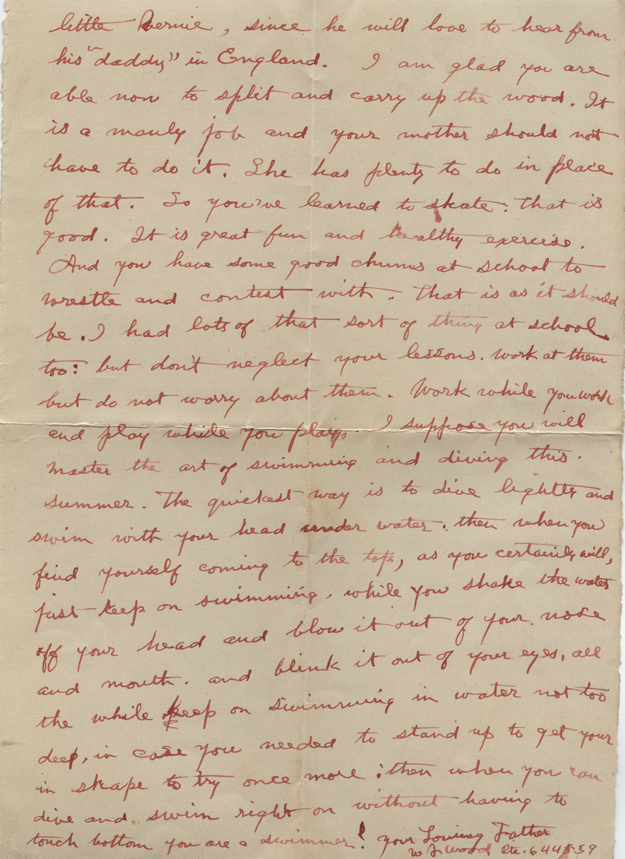 little Bernie, since he will love to hear from
his "daddy" in England. I am glad you are
able now to split and carry up the wood. It
is a manly job and your mother should not
have to do it. She has plenty to do in place
of that. So you've learned to skate: that is
good. It is great fun and healthy exercise.
And you have some good chums at school to
wrestle and contest with. That is as it should
be. I had lots of that sort of thing at school
too: but don't neglect your lessons. Work at them
but do not worry about them. Work while you work
and play while you play. I suppose you will
master the art of swimming and diving this
summer. The quickest way is to dive lightly and
swim with your head under water. then when you
find yourself coming to the top, as you certainly will,
just keep on swimming, while you shake the water
off your head and blow it out of your nose
and mouth. and blink it out of your eyes, all
the while keep on swimming in water not too
deep, in case you needed to stand up to get your
in shape to try once more: then when you can
dive and swim right on without having to
touch bottom you are a swimmer! your Loving Father
W J Wood Pte. 644539